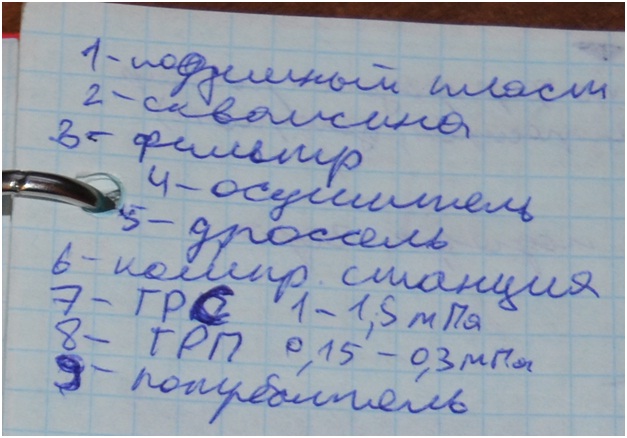 1 - подземный пласт
2 - скважина
3 - фильтр
4 - осушитель
5 - дроссель
6 - компр. станция
7 - ГРС 1 - 1,5 мПа
8 - ГРП 0,15 - 0,3 мПа
9 - потребитель